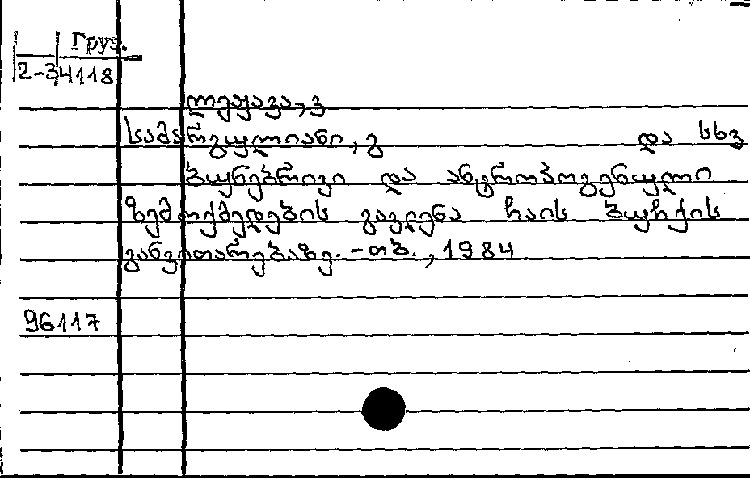 Груз.
2-34118
ლეჟავა, ვ
სამარგულიანი, გ და სხვ
ბუნებრივი და ანტროპოგენული
ზემოქმედების გავლენა ჩაის ბუჩქის
განვითარებაზე. - თბ., 1984
96117